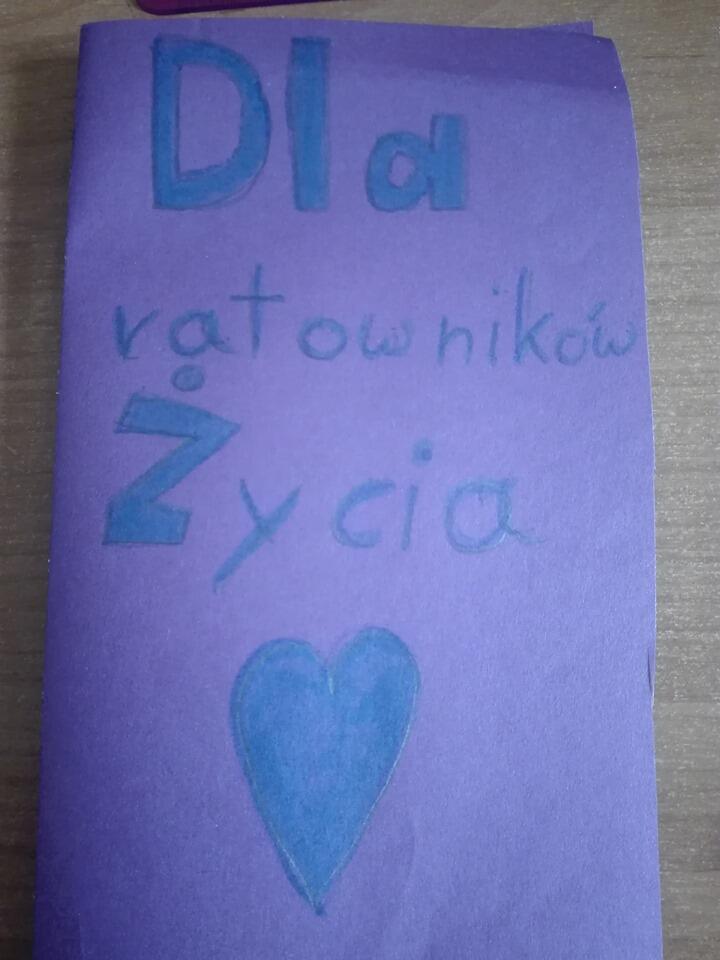 Dla
ratowników
Życia